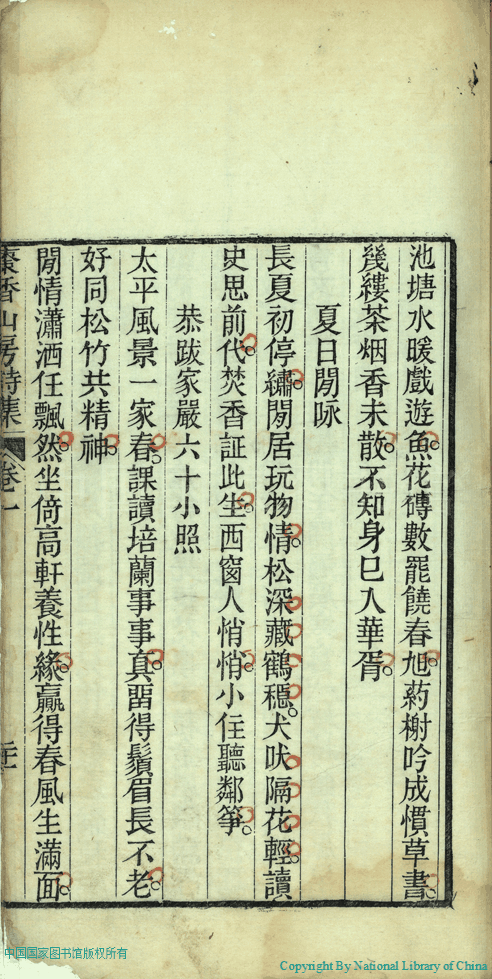 池塘水暖戲遊魚花磚數罷饒春旭葯榭吟成慣草書
幾縷茶烟香未散不知身已入華胥
夏日閒咏
長夏初停繡閒居玩物情松深藏鶴穩犬吠隔花輕讀
史思前代焚香証此生西窗人悄悄小住聽鄰箏
恭跋家嚴六十小照
太平風景一家春課讀培蘭事事真畱得鬚眉長不老
好同松竹共精神
閒情瀟洒任飄然坐倚高軒養性緣贏得春風生滿面
香山房詩集 卷一
中国国家图书馆版权所有
Copyright By National Library of China